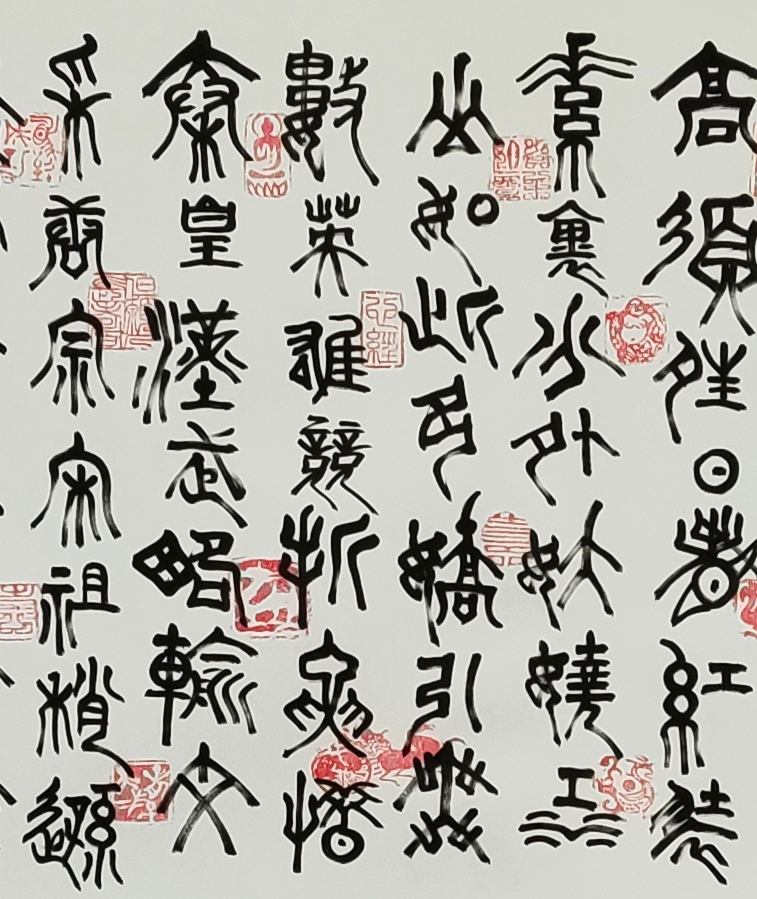 高須晴日看紅裝
素裹分外妖嬈江
山如此多嬌引無
數英雄競折腰惜
秦皇漢武略輸文
采唐宗宋祖稍遜